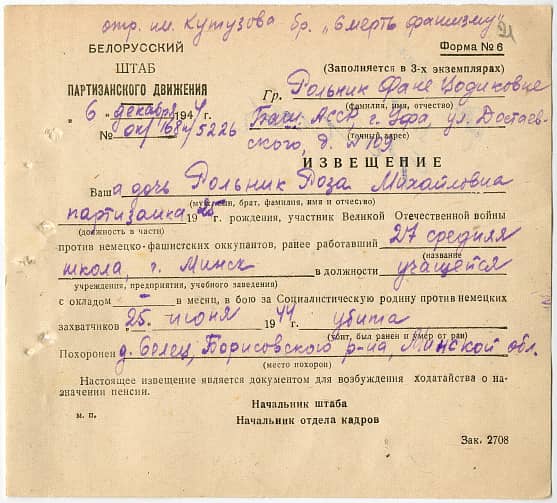 отр. им. Кутузова бр. „Смерть фашизму"
БЕЛОРУССКИЙ
ШТАБ
ПАРТИЗАНСКОГО ДВИЖЕНИЯ
„ 6 „ декабря 1944 г.
№ ок/168п/5226
Форма № 6
(Заполняется в 3-х экземплярах)
Гр. Рольник Фане Цодиковне
(фамилия, имя, отчество)
Баш. АССР, г. Уфа, ул. Достаев-
(точный адрес)
ского, д. №109.
ИЗВЕЩЕНИЕ
Ваша дочь Рольник Роза Михайловна
(муж, сын, брат, фамилия, имя и отчество)
партизанка 1925 г. рождения, участник Великой Отечественной войны
(должность в части)
против немецко-фашистских оккупантов, ранее работавший 27 средняя
(название
школа, г. Минск в должности учащейся
учреждения, предприятия, учебного заведения)
с окладом – в месяц, в бою за Социалистическую родину против немецких
захватчиков 25 июня 1944 г. убита
(убит, был ранен и умер от ран)
Похоронен д. Селец, Борисовского р-на, Минской обл.
(место похорон)
Настоящее извещение является документом для возбуждения ходатайства о на-
значении пенсии.
Начальник штаба
м. п.
Начальник отдела кадров
Зак. 2708